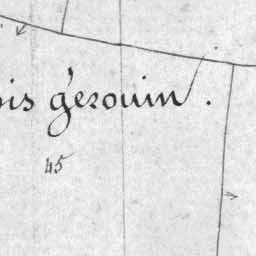 ois gérouin.
45